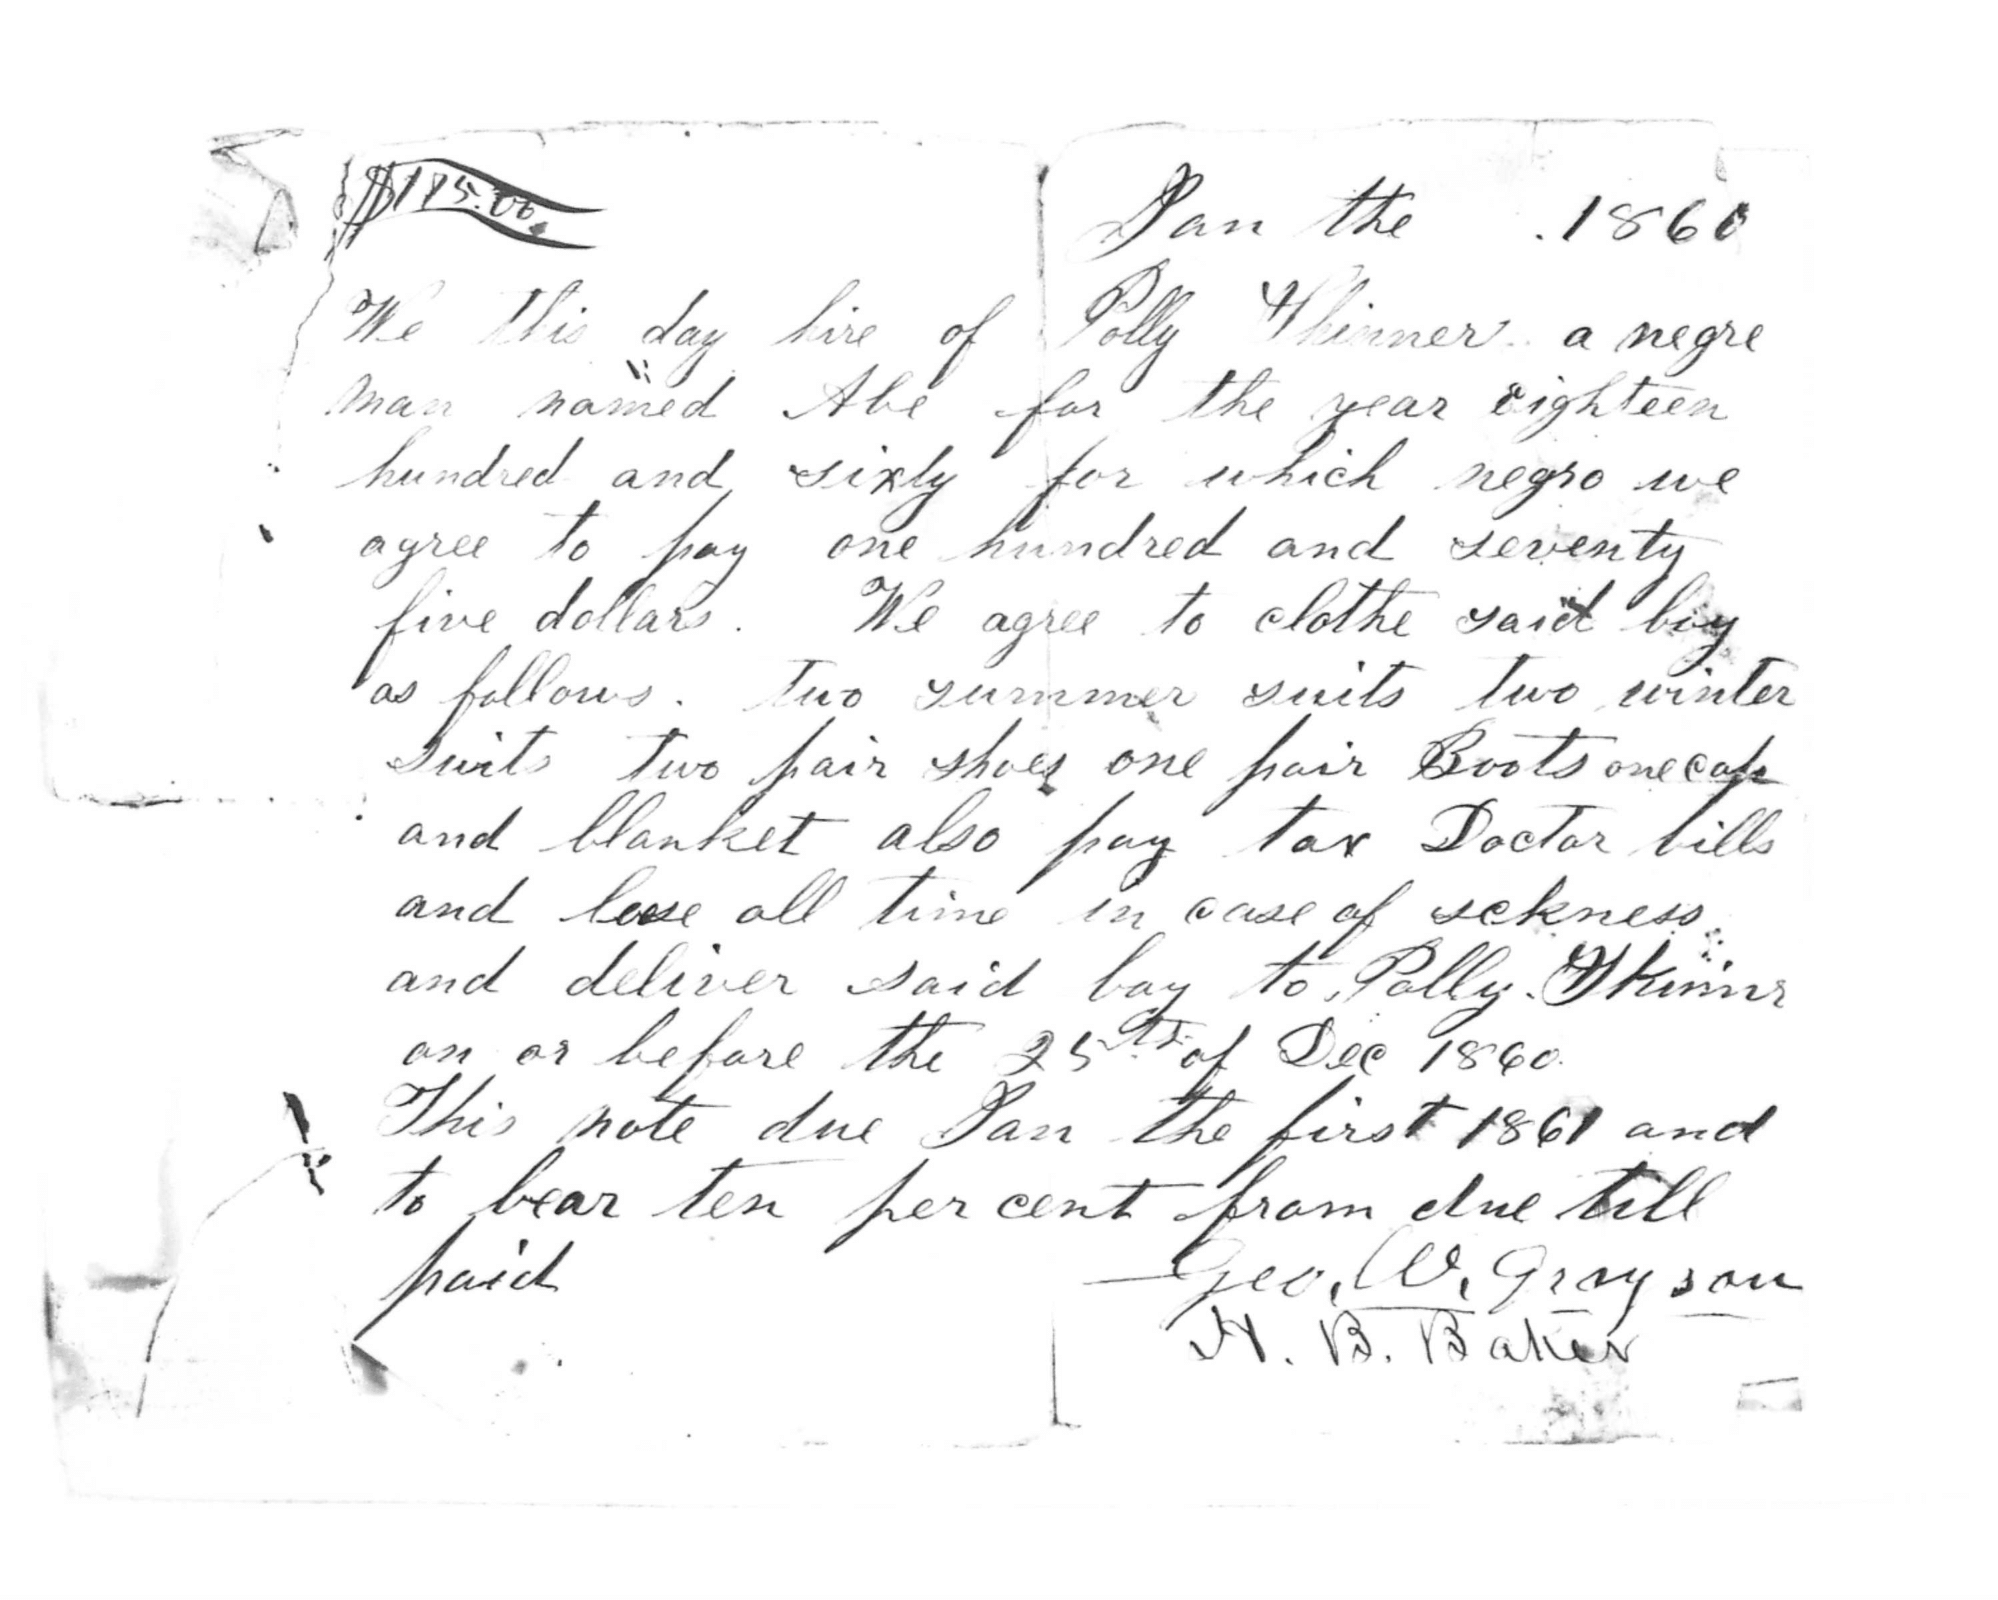 $175.00
Jan the . 1860
We this day hire of Polly Skinner a negre
man named Abe for the year eighteen
hundred and sixty for which negro we
agree to pay one hundred and seventy
five dollars. We agree to clothe said boy
as follows. two summer suits two winter
suits two pair shoes one pair Boots one cap
and blanket also pay tax Doctor bills
and loose all time in case of sckness
and deliver said boy to Polly. Skinnr
on or before the 25th of Dec 1860.
This note due Jan the first 1861 and
to bear ten per cent from due till
paid
Geo. W. Grayson
H. B. Baker